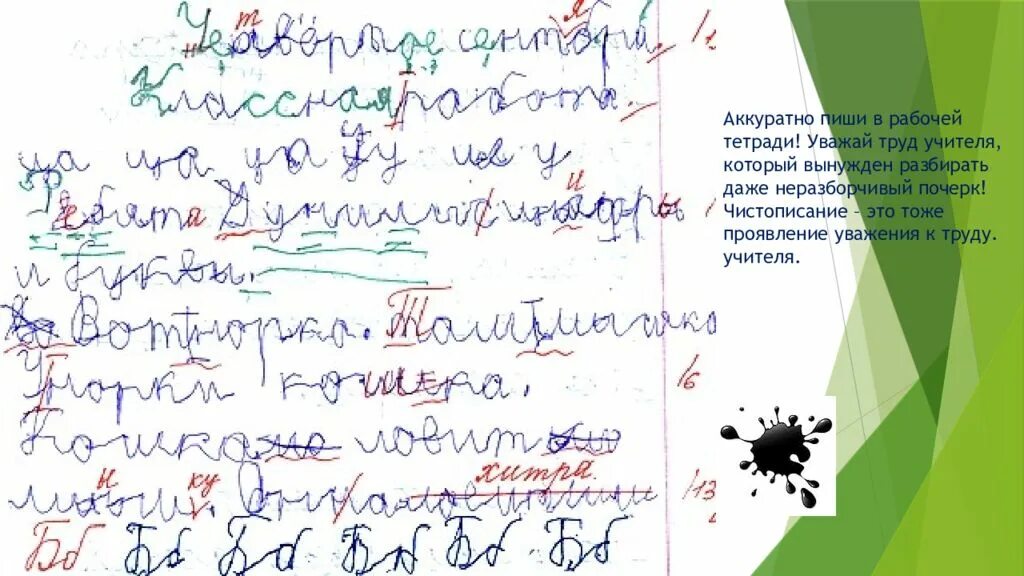 т я
Чеавёртое сентебря. /1
Классная работа.
ца ца ца Уу це у
и
Ребята Дунили
и буквы.
Вот норка. Там мышка
У норки кошка. /6
Кошка ловит
ы ку хитра.
/13
Бб Бб Бб Бб Бб Бб
Аккуратно пиши в рабочей
тетради! Уважай труд учителя,
который вынужден разбирать
даже неразборчивый почерк!
Чистописание – это тоже
проявление уважения к труду.
учителя.